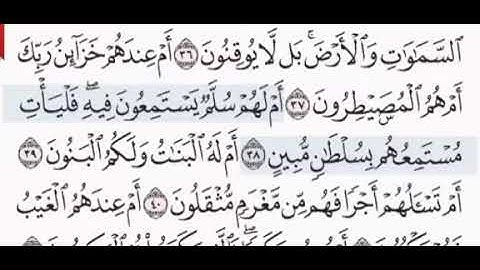 ٱلسَّمَٰوَٰتِ وَٱلْأَرْضَۚ بَل لَّا يُوقِنُونَ ٣٦ أَمْ عِندَهُمْ خَزَآئِنُ رَبِّكَ
أَمْ هُمُ ٱلْمُصَۜيْطِرُونَ ٣٧ أَمْ لَهُمْ سُلَّمٌ يَسْتَمِعُونَ فِيهِۖ فَلْيَأْتِ
مُسْتَمِعُهُم بِسُلْطَٰنٍ مُّبِينٍ ٣٨ أَمْ لَهُ ٱلْبَنَٰتُ وَلَكُمُ ٱلْبَنُونَ ٣٩
أَمْ تَسْـَٔلُهُمْ أَجْرًا فَهُم مِّن مَّغْرَمٍ مُّثْقَلُونَ ٤٠ أَمْ عِندَهُمُ ٱلْغَيْبُ